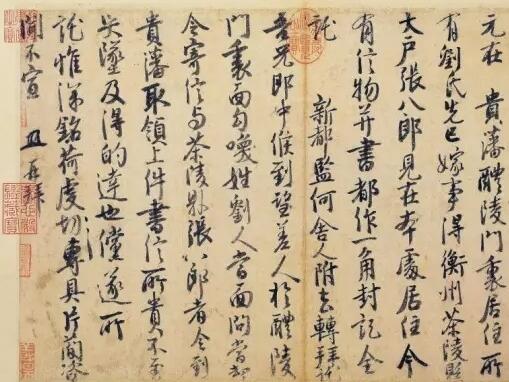 元在 貴藩醴陵門裏居住所
有劉氏先已嫁事得衡州茶陵縣
大戶張八郎見在本處居住今
有信物并書都作一角封記全
託 新都監何舍人附去轉拜託
吾兄郎中候到望差人於醴陵
門裏面勾喚姓劉人當面問當却
令寄信與茶陵縣張八郎者令到
貴藩取領上件書信所貴不至
失墜及得的達也儻遂所
託惟深銘荷虔切專具片簡咨
聞不宣 再拜